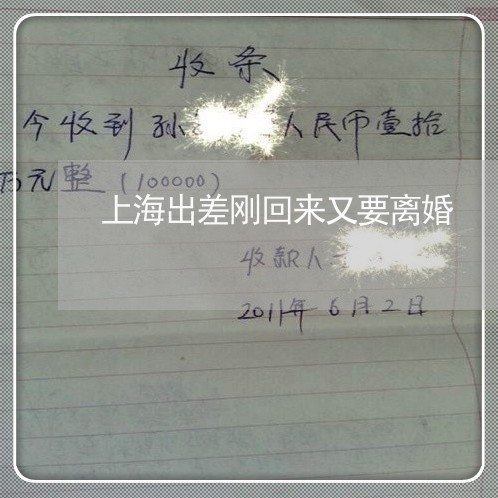 收条
今收到孙 人民币壹拾
万元整（100000）
上海出差刚回来又要离婚
收款人
2011年6月2日